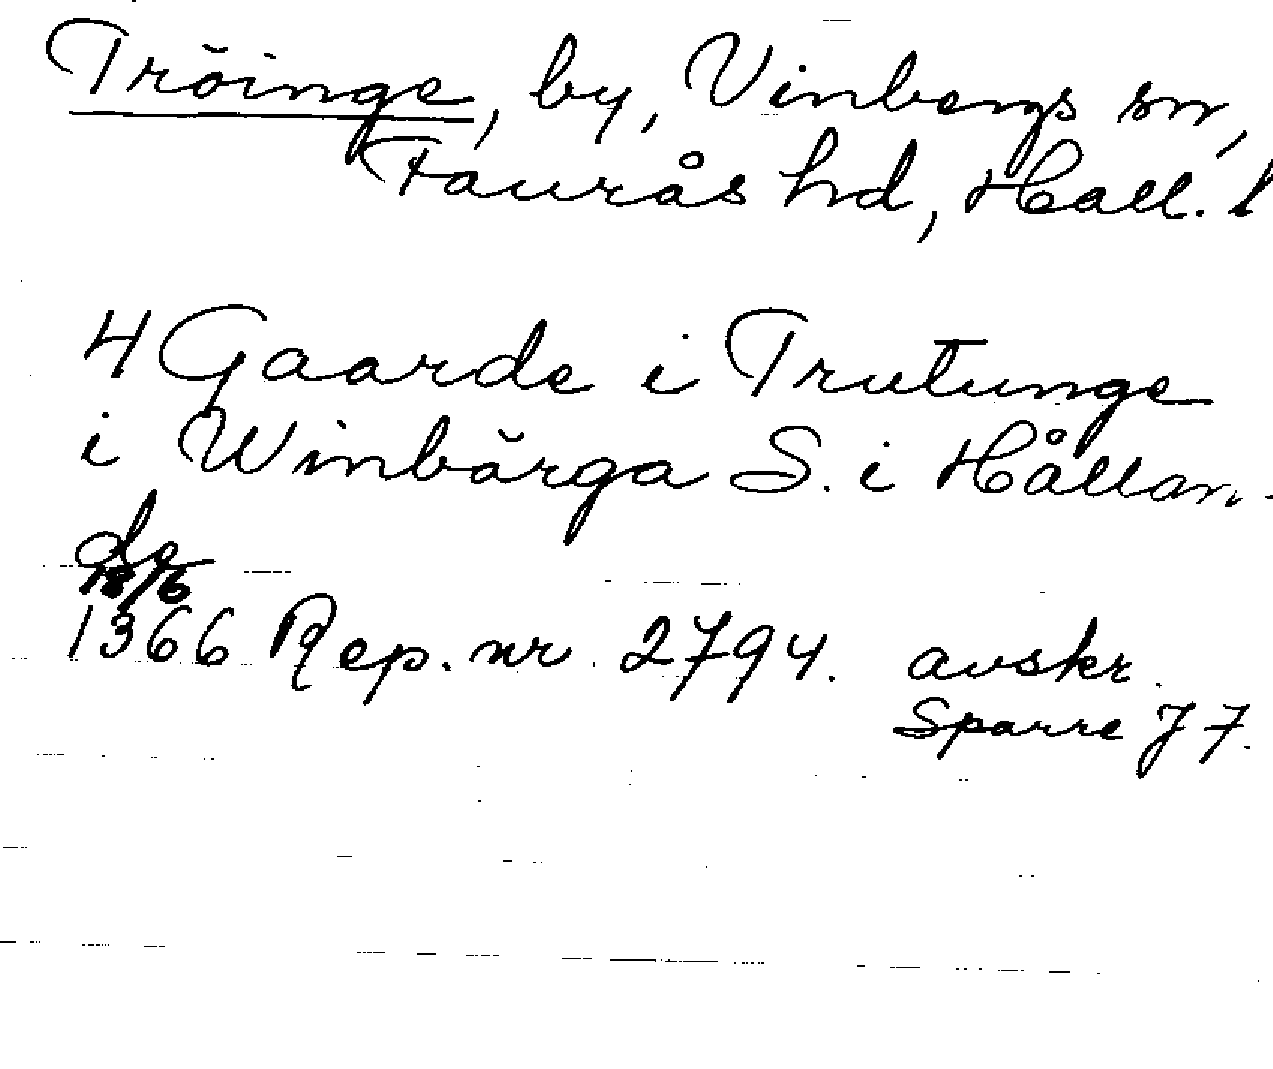 Tröinge, by, Vinbergs sn,
Faurås hd, Hall. l
4 Gaarde i Trutunge
i Winbärga S. i Hållan-
de
18/6
1366 Rep. nr. 2794. avskr.
Sparre J 7.